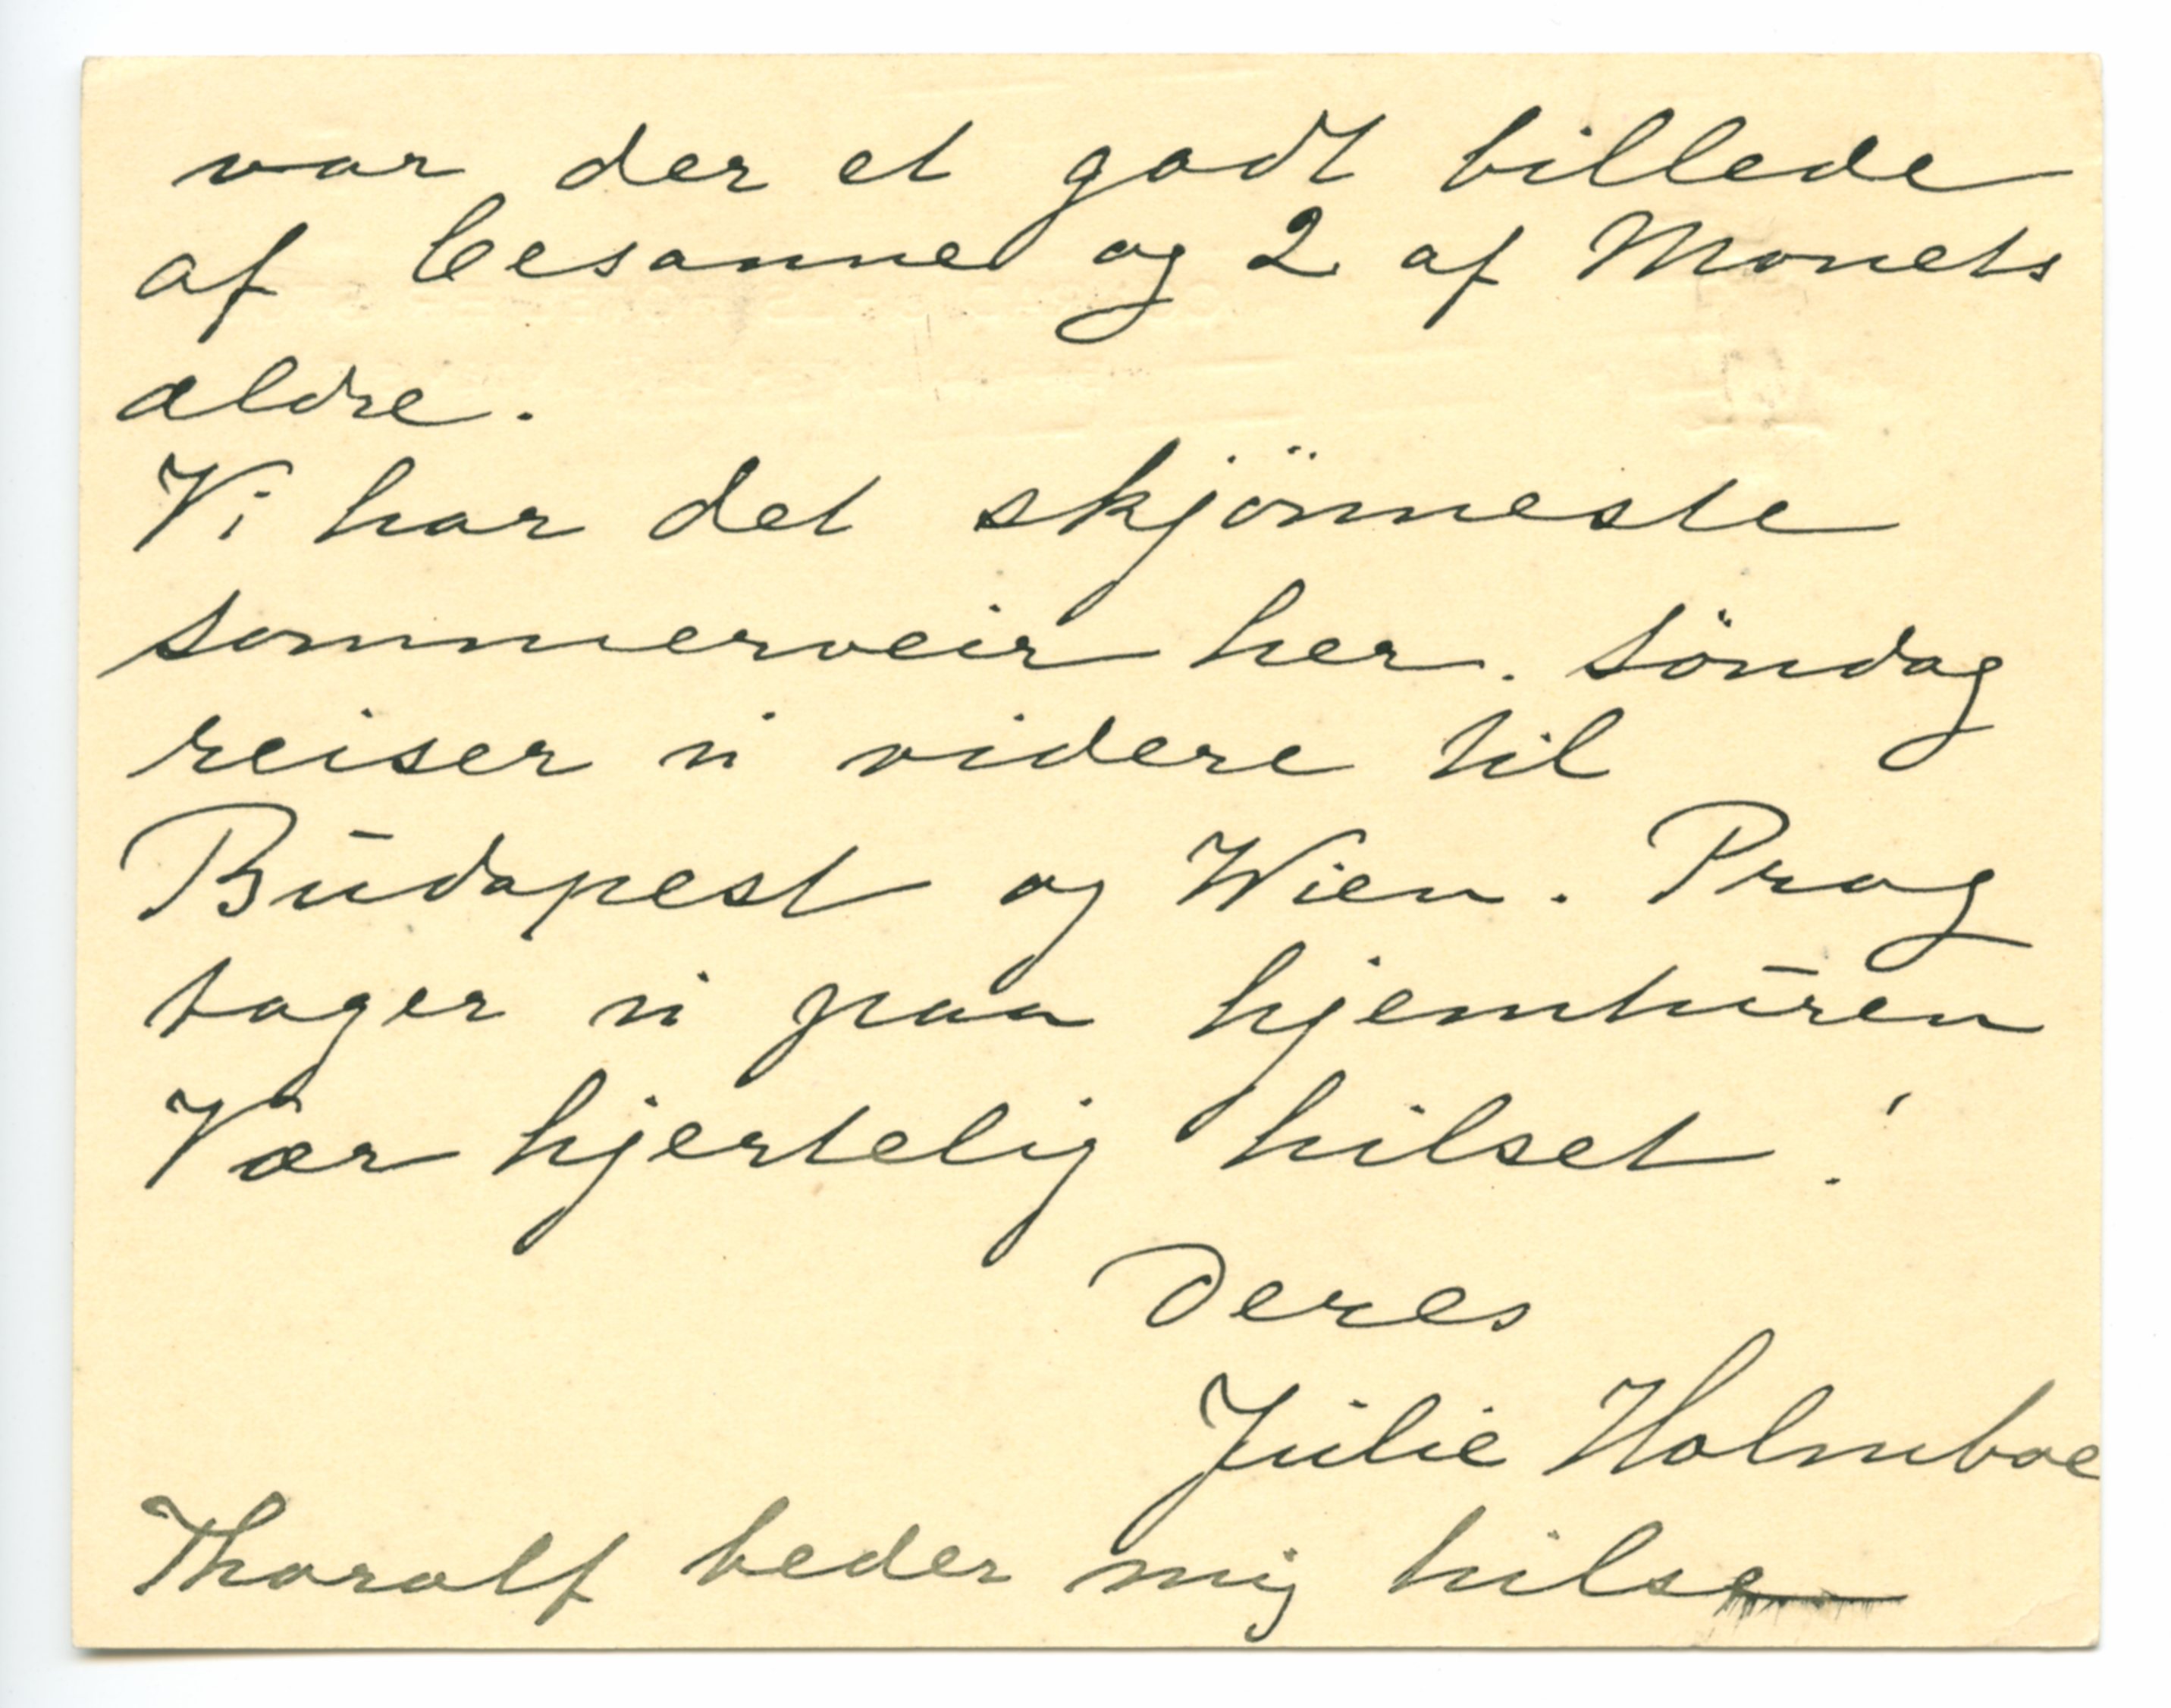 var der et godt billede
af Cesanne og 2 af Monets
ældre.
Vi har det skjönneste
sommerveir her. Söndag
reiser vi videre til
Būdapest og Wien. Prag
tager vi paa hjemtūren
Vær hjertelig hilset!
Deres
Julie Holmboe
Thorolf beder mig hilse